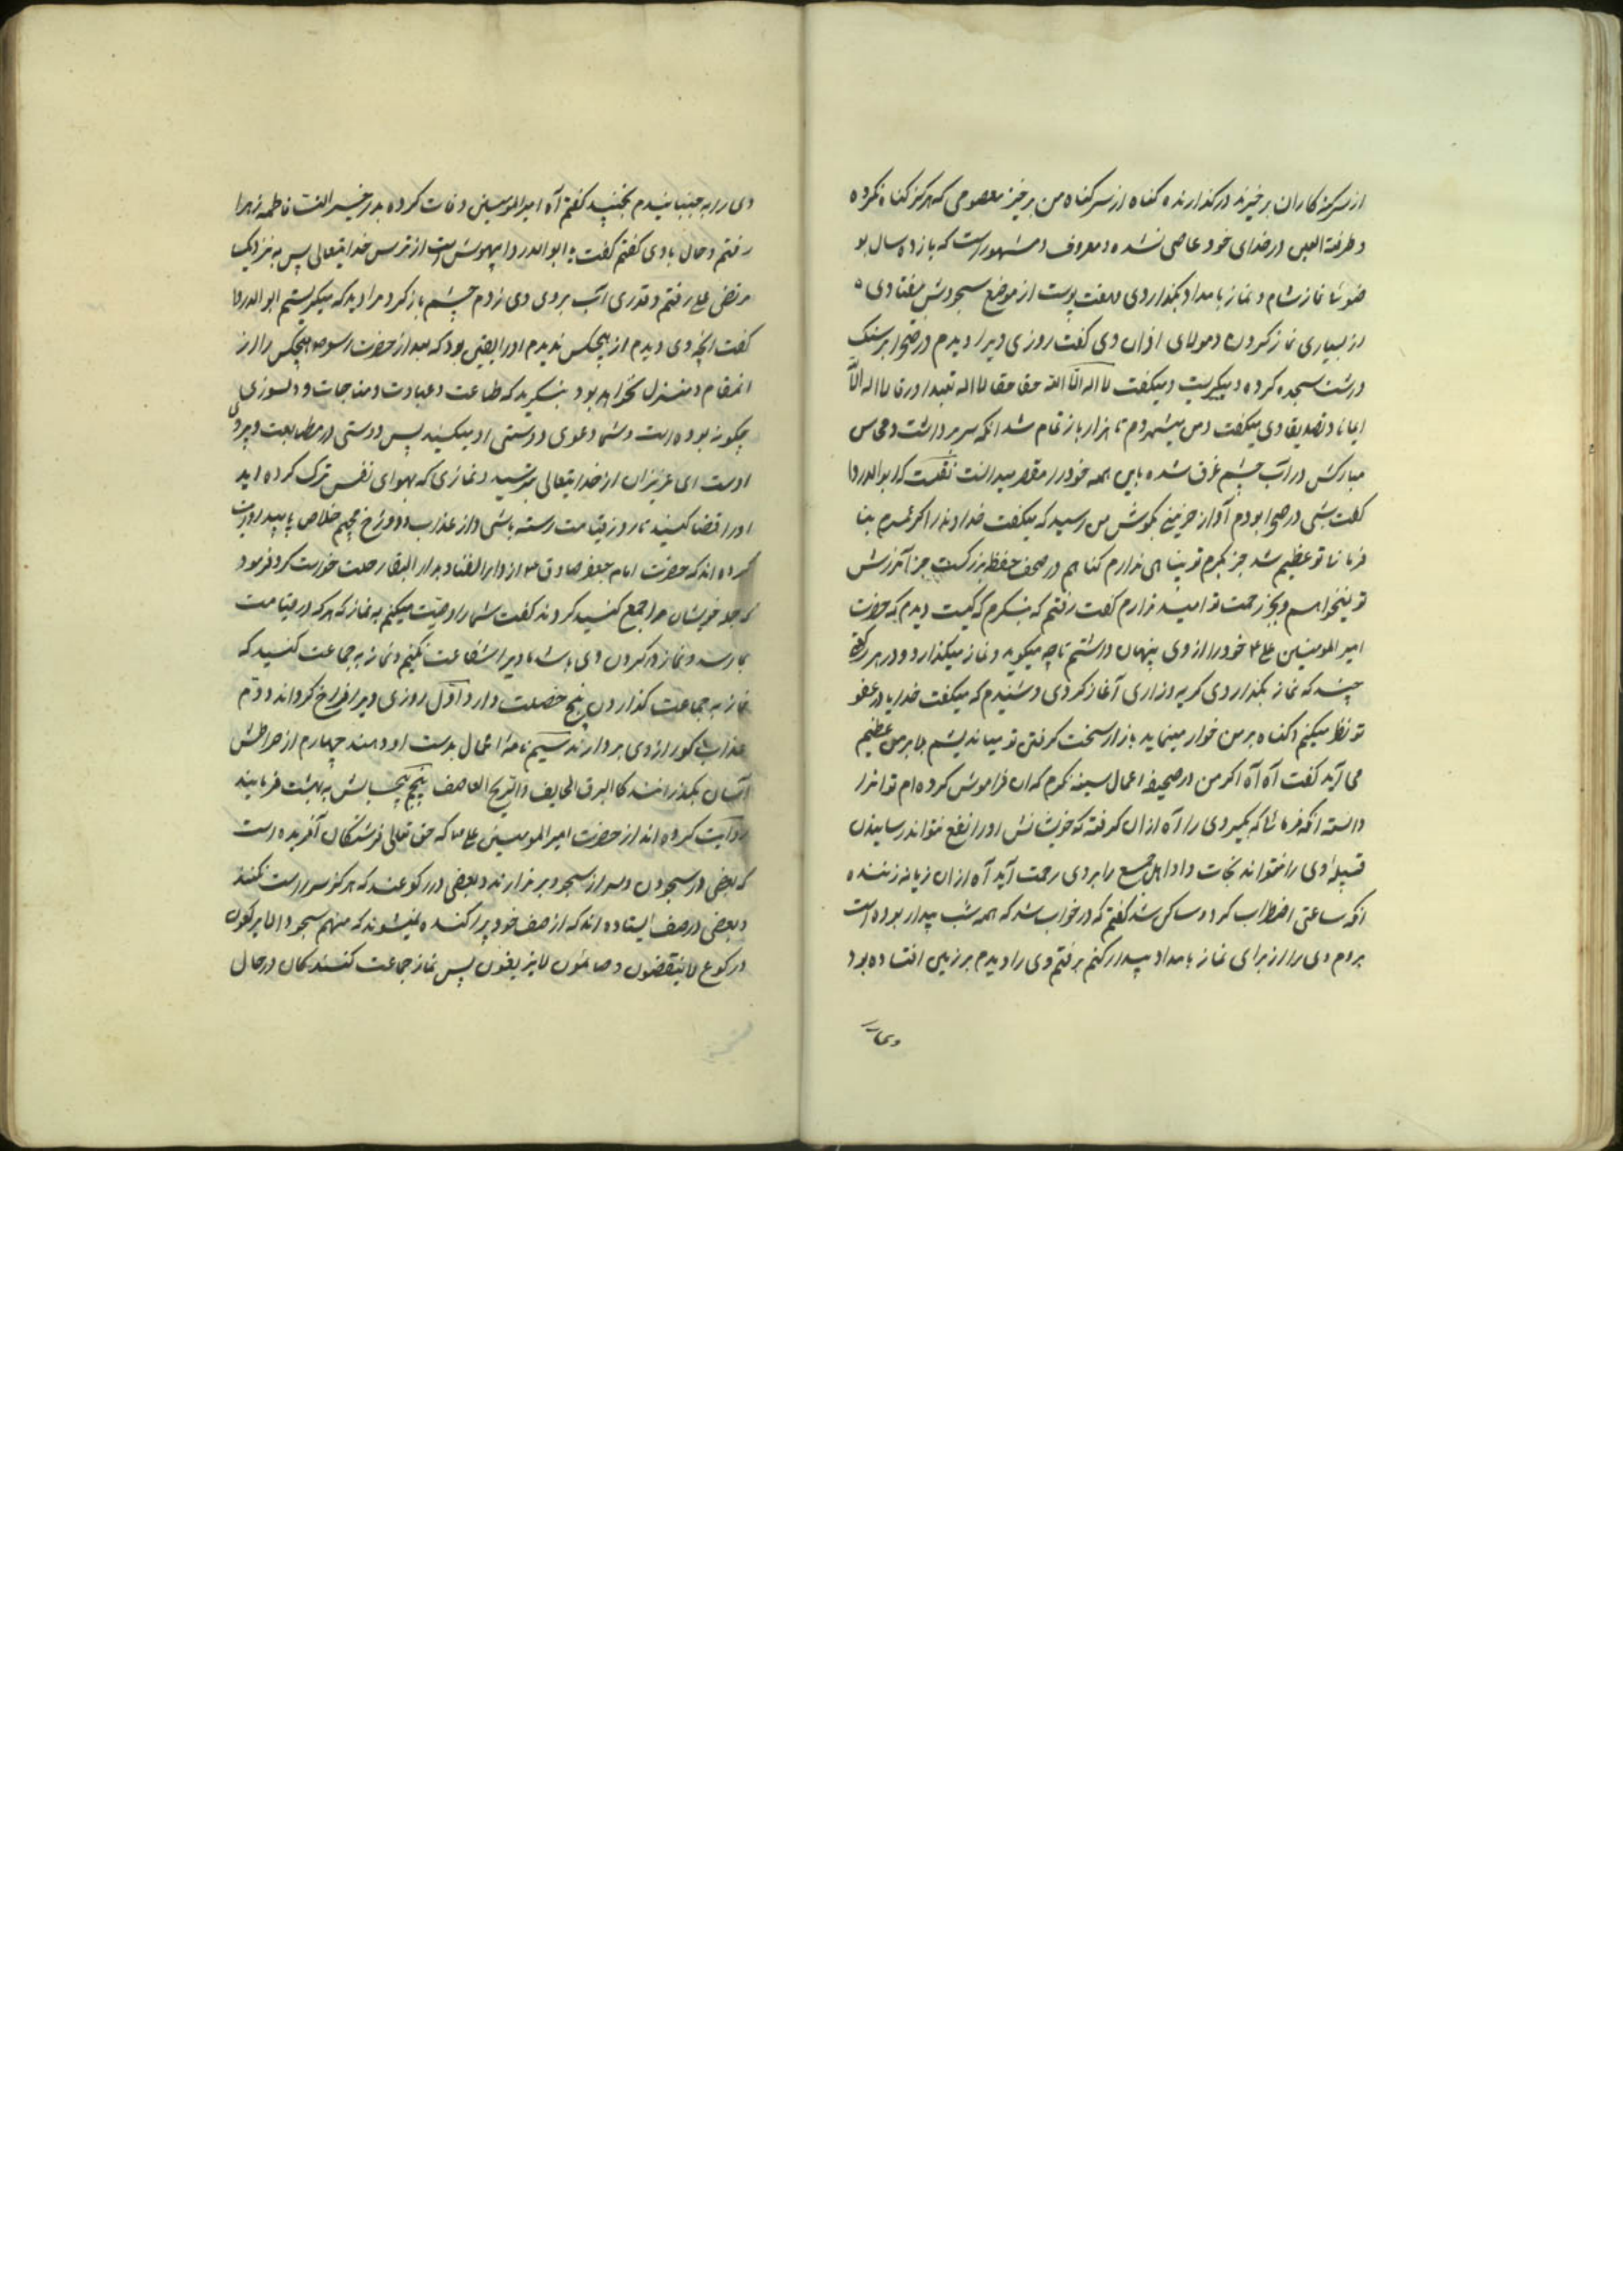 از سر گنه کاران برخیزند درگذارنده گناه از سر گناه من برخیز معصومی که هرگز گناه نکرده
و طرفة العین در خدای خود عاصی نشده و معروف و مشهور است که یازده سال بو
ضوء نماز شام و نماز بامداد بگذاردی و هفت پوست از موضع سجودش بیفتادی
از بسیاری نماز کردن و مولای اذان وی گفت روزی ویرا دیدم در صحرا بر سنک
درشت سجده کرده و میگریست و میگفت لا اله الا الله حقا حقا لا اله الا الله تعبدا ورقا لا اله الا الله
ایمانا و تصدیقا وی میگفت و من میشمردم تا هزار بار تمام شد انکه سر برداشت و محاسن
مبارکش در اب چشم غرق شده باین همه خود را مقصر میدانست نقلست که ابوالدردا
گفت شبی در صحرا بودم آواز حزینی بگوش من رسید که میگفت خداوندا اگر عمرم بنا
فرمانی تو عظیم شد جز بکرم تو پناهی ندارم گناهم در صحف حفظه بزرگست جز آمرزش
تو نمیخواهم و بجز رحمت تو امید ندارم گفت رفتم که بنگرم که کیست دیدم که حضرت
امیر المومنین علی ع خود را از وی پنهان داشتم تا چه میگوید و نماز میگذارد و در هر رکعتی
چند که نماز بگذاردی گریه و زاری آغاز کردی و شنیدم که میگفت خدایا در عفو
تو نظر میکنم گناه بر من خوار مینماید باز از سخت گرفتن تو میاندیشم بلا بر من عظیم
می آید گفت آه آه اگر من در صحیفه اعمال سیئه نگرم که ان فراموش کرده ام تو انرا
دانسته انگه فرمائی که بگیر وی را آه از ان گرفته که خویشانش او را نفع نتواند رسانیدن
قبیله وی را نتواند نجات داد اهل جمع را بر وی رحمت آید آه از ان زبانه زننده
انگه ساعتی اضطراب کرد و ساکن شد گفتم که در خواب شد که همه شب بیدار بوده است
بروم وی را از برای نماز بامداد بیدار کنم برفتم وی را دیدم بر زمین افتاده بود
وی را بجنبانیدم نجنبید گفتم آه امیرالمومنین وفات کرده بدر خیر النساء فاطمه زهرا
رفتم و حال با وی گفتم گفت یا ابوالدردا بیهوش است از ترس خدایتعالی پس به نزدیک
مرتضی علی رفتم و قدری اب بر وی وی زدم چشم باز کرد مرا دید که میگریستم ابوالدردا
گفت آنچه وی دیدم از هیچکس ندیدم او را یقین بود که بعد از حضرت رسول ص هیچکس را از
انمقام و منزل نخواهد بود بنگرید که طاعت و عبادت و مناجات و دلسوزی
چگونه بوده است و شما دعوی دوستی او میکنید پس دوستی در مطابعت و پیروی
اوست ای عزیزان از خدایتعالی بترسید و نمازی که بهوای نفس ترک کرده اید
اورا قضا کنید تا روز قیامت رسته باشی و از عذاب دوزخ جحیم خلاص یابید روایت
کرده اند که حضرت امام جعفر صادق ع از دار الفنا بدار البقا رحلت خواست کرد فرمود
که جمله خویشان مرا جمع کنید کردند گفت شما را وصیت میکنم به نماز که هر که در قیامت
بما رسد و نماز در گردن وی باشد ما ویرا شفاعت نکنیم و نماز به جماعت کنید که
نماز به جماعت گذاردن پنج خصلت دارد اول روزی ویرا فراخ گرداند دوم
عذاب گور از وی بردارند سیم نامه اعمال بدست او دهند چهارم از صراطش
آسان بگذرانند کالبرق الخاطف والریح العاصف پنجم بیحسابش به بهشت فرمایند
روایت کرده اند از حضرت امیرالمومنین علی ع که حق تعالی فرشتگان آفریده است
که بعضی در سجودن و سر از سجود برندارند و بعضی در رکوعند که هرگز سر راست نکنند
و بعضی در صف ایستاده اند که از صف خود پراکنده نمیشوند که منهم سجود لا یرکعون
و رکوع لا ینتقضون و صافون لا یتزیغون پس نماز جماعت کنندگان در حال